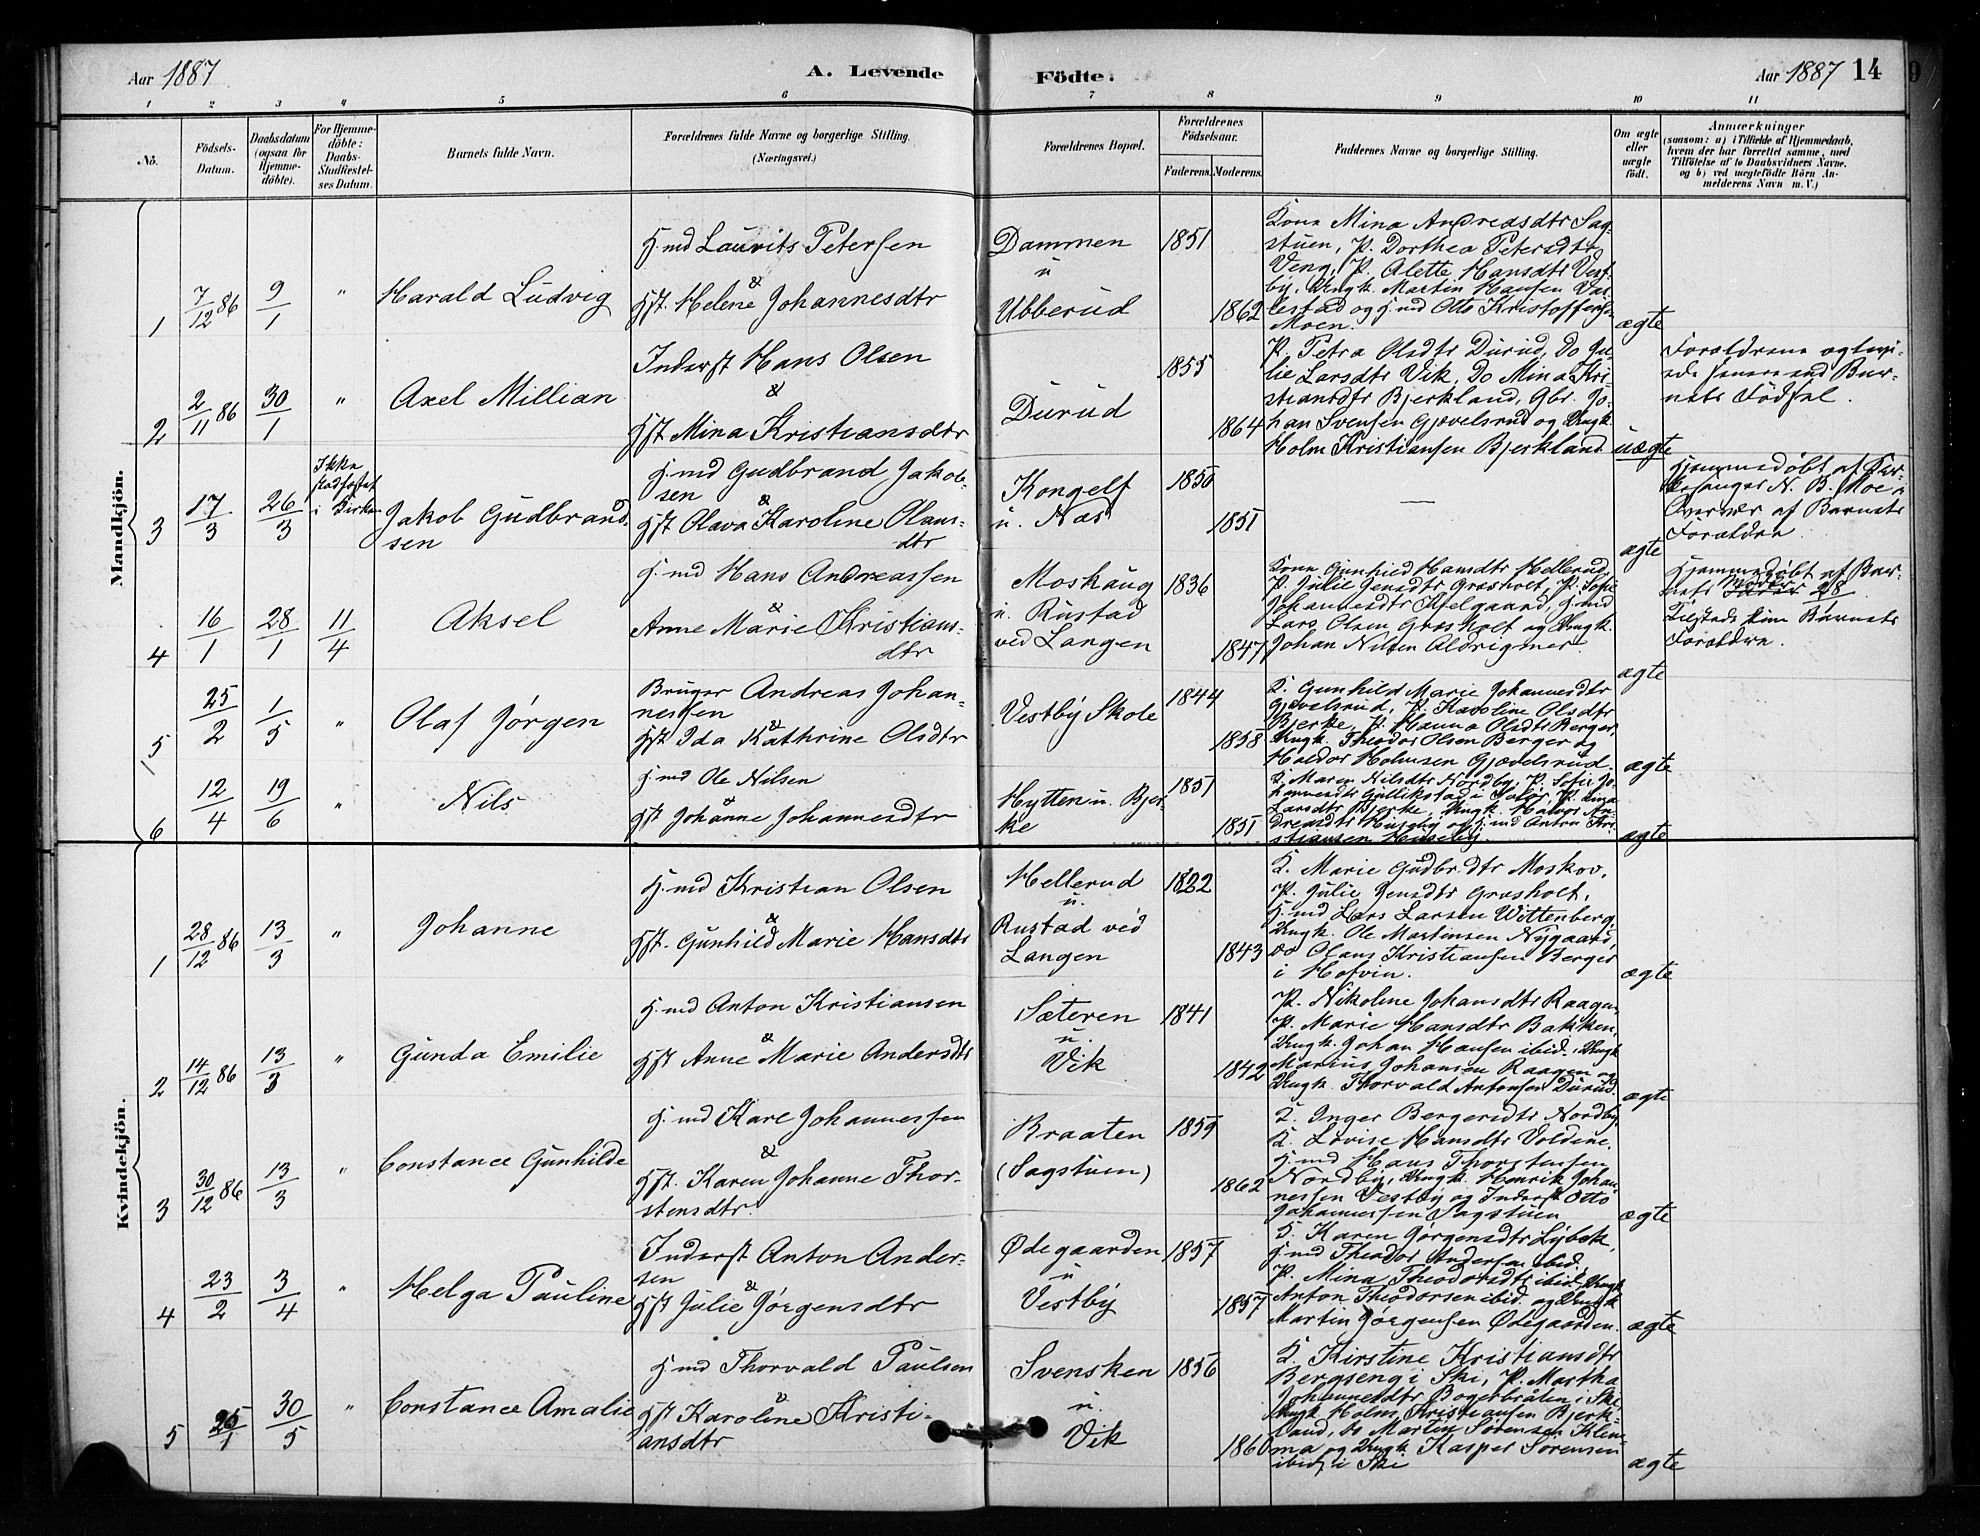 Aar 1887
A. Levende
Födte.
Aar 1887 14
9
1 2 3 4 5 6 7 8 9 10 11
No.
Födsels-
Datum.
Daabsdatum
(ogsaa for
Hjemme-
döbte).
For Hjemme-
döbte:
Daabs-
Stadfæstel-
ses Datum.
Barnets fulde Navn.
Forældrenes fulde Navne og borgerlige Stilling.
(Næringsvei.)
Forældrenes Bopæl.
Forældrenes
Födselsaar.
Faderens. Moderens.
Faddernes Navne og borgerlige Stilling.
Om ægte
eller
uægte
födt.
Anmærkninger
(saasom: a) i Tilfælde af Hjemmedaab,
hvem der har forrettet samme, med
Tilföielse af to Daabsvidners Navne.
og b) ved uægtefödte Börn An-
melderens Navn m. V.)
Mandkjön.
1
7/12 86
9/1
"
Harald Ludvig
H.md Laurits Petersen
&
Hst. Helene Johannesdtr
Dammen
u
Ubberud
1851
1862
Kone Mina Andreasdtr Sag-
stuen, P. Dorthea Petersdtr
Veng, P. Alette Hansdtr Vest-
by, Ungk. Martin Hansen
lestad og H.md Otto Kristoffersen
Moen.
ægte
2
2/11 86
30/1
"
Axel Millian
Inderst Hans Olsen
&
Hst Mina Kristiansdtr
Durud
1855
1864
P. Petra Olsdtr Durud, Do Ju-
lie Larsdtr Vik, Do Mina Kri-
stiansdtr Bjerkland, Gbr. Jo-
han Svensen Gjævelsrud og Ungk.
Holm Kristiansen Bjerkland.
uægte
Forældrene ægtevi-
ede senere end Bar-
nets Födsel.
3
17/3
26/3
Ikke
stadfæstet
i Kirken
Jakob Gudbrand-
sen
H.md Gudbrand Jakob-
sen
&
Hst Olava Karoline Olaus-
dtr
Kongelf
u. Næs
1850
1851
—
ægte
Hjemmedøbt af Kir-
kesanger N. B. Moe i
Overvær af Barnets
Forældre.
4
16/1
28/1
11/4
Aksel
H.md Hans Andreassen
&
Anne Marie Kristians-
dtr
Moskaug
u. Rustad
ved Langen
1836
1847
Kone Gunhild Hansdtr Hellerud,
P. Julie Jensdtr Græsholt, P. Sofie
Johannesdtr, H.md
Lars Olsen Græsholt og Ungk.
Johan Nilsen Aldrigmer.
ægte
Hjemmedøbt af Bar-
nets Moder 28/1.
Tilstede kun Barnets
Forældre.
5
25/2
1/5
"
Olaf Jørgen
Bruger Andreas Johan-
nessen
&
Hst Ida Kathrine Olsdtr
Vestby Skole
1844
1858
K. Gunhild Marie Johannesdtr
Gjævelsrud, P. Karoline Olsdtr
Bjerke, P. Hanna Olsdtr Berger,
Ungk. Theodor Olsen Berger og
Haldor Holmsen Gjævelsrud.
ægte
6
12/4
19/6
"
Nils
H.md Ole Nilsen
&
Hst Johanne Johannesdtr
Hytten u. Bjer-
ke
1851
1851
K. Maren Nilsdtr Nordby, P. Sofie Jo-
hannesdtr Gullikstad i, P.
Larsdtr Bjerke, Ungk. Halvor An-
Huseby og H.md Anton Kri-
stiansen Huseby.
ægte
Kvindekjön.
1
28/12 86
13/3
"
Johanne
H.md Kristian Olsen
&
Hst. Gunhild Marie Hansdtr
Hellerud
u.
Rustad ved
Langen
1822
1843
K. Marie Gudbr.dtr Moskov,
P. Julie Jensdtr Græsholt,
H.md Lars Larsen Wittenberg,
Ungk. Ole Martinsen Nygaard,
Do Olaus Kristiansen Berger
i Hofvin.
ægte
2
14/12 86
13/3
"
Gunda Emilie
H.md Anton Kristiansen
&
Hst Anne Marie Andersdtr
Sæteren
u.
Vik
1841
1842
P. Nikoline Johansdtr Raagen,
P. Marie Hansdtr Bakken,
Ungk. Johan Hansen ibid., Ungk
Marius Johansen Raagen og
Ungk. Thorvald Antonsen Durud.
ægte
3
30/12 86
13/3
"
Constance Gunhilde
H.md Karl Johannessen
&
Hst. Karen Johanne Thor-
stensdtr.
Braaten
(Sagstuen)
1859
1862
K. Inger Bergersdtr Nordby,
K. Lovise Hansdtr Voldene,
H.md Hans Thorstensen
Nordby, Ungk. Henrik Johan-
nessen Vestby og Inderst Otto
Johannessen Sagstuen
ægte
4
23/2
3/4
"
Helga Pauline
Inderst Anton Ander-
sen
&
Hst Julie Jørgensdtr
Ødegaarden
u
Vestby
1857
1857
K. Karen Jørgensdtr Lybek,
H.md Theodor Andersen ibid.,
P. Mina Theodorsdtr ibid., Ungk
Anton Theodorsen ibid. og Ungk
Martin Jørgensen Ødegaarden.
ægte
5
25/1
30/5
"
Constance Amalie
H.md Thorvald Paulsen
&
Hst Karoline Kristi-
ansdtr
Svensken
u.
Vik
1856
1860
K. Kirstine Kristiansdtr
Bergseng i Ski, P. Martha
Johannesdtr Bøgerbråten i Ski
Ungk. Holm Kristiansen Bjerk-
land, Do Martin Sørensen Klem-
ma og Ungk Kasper Sørensen
ibid, i Ski
ægte